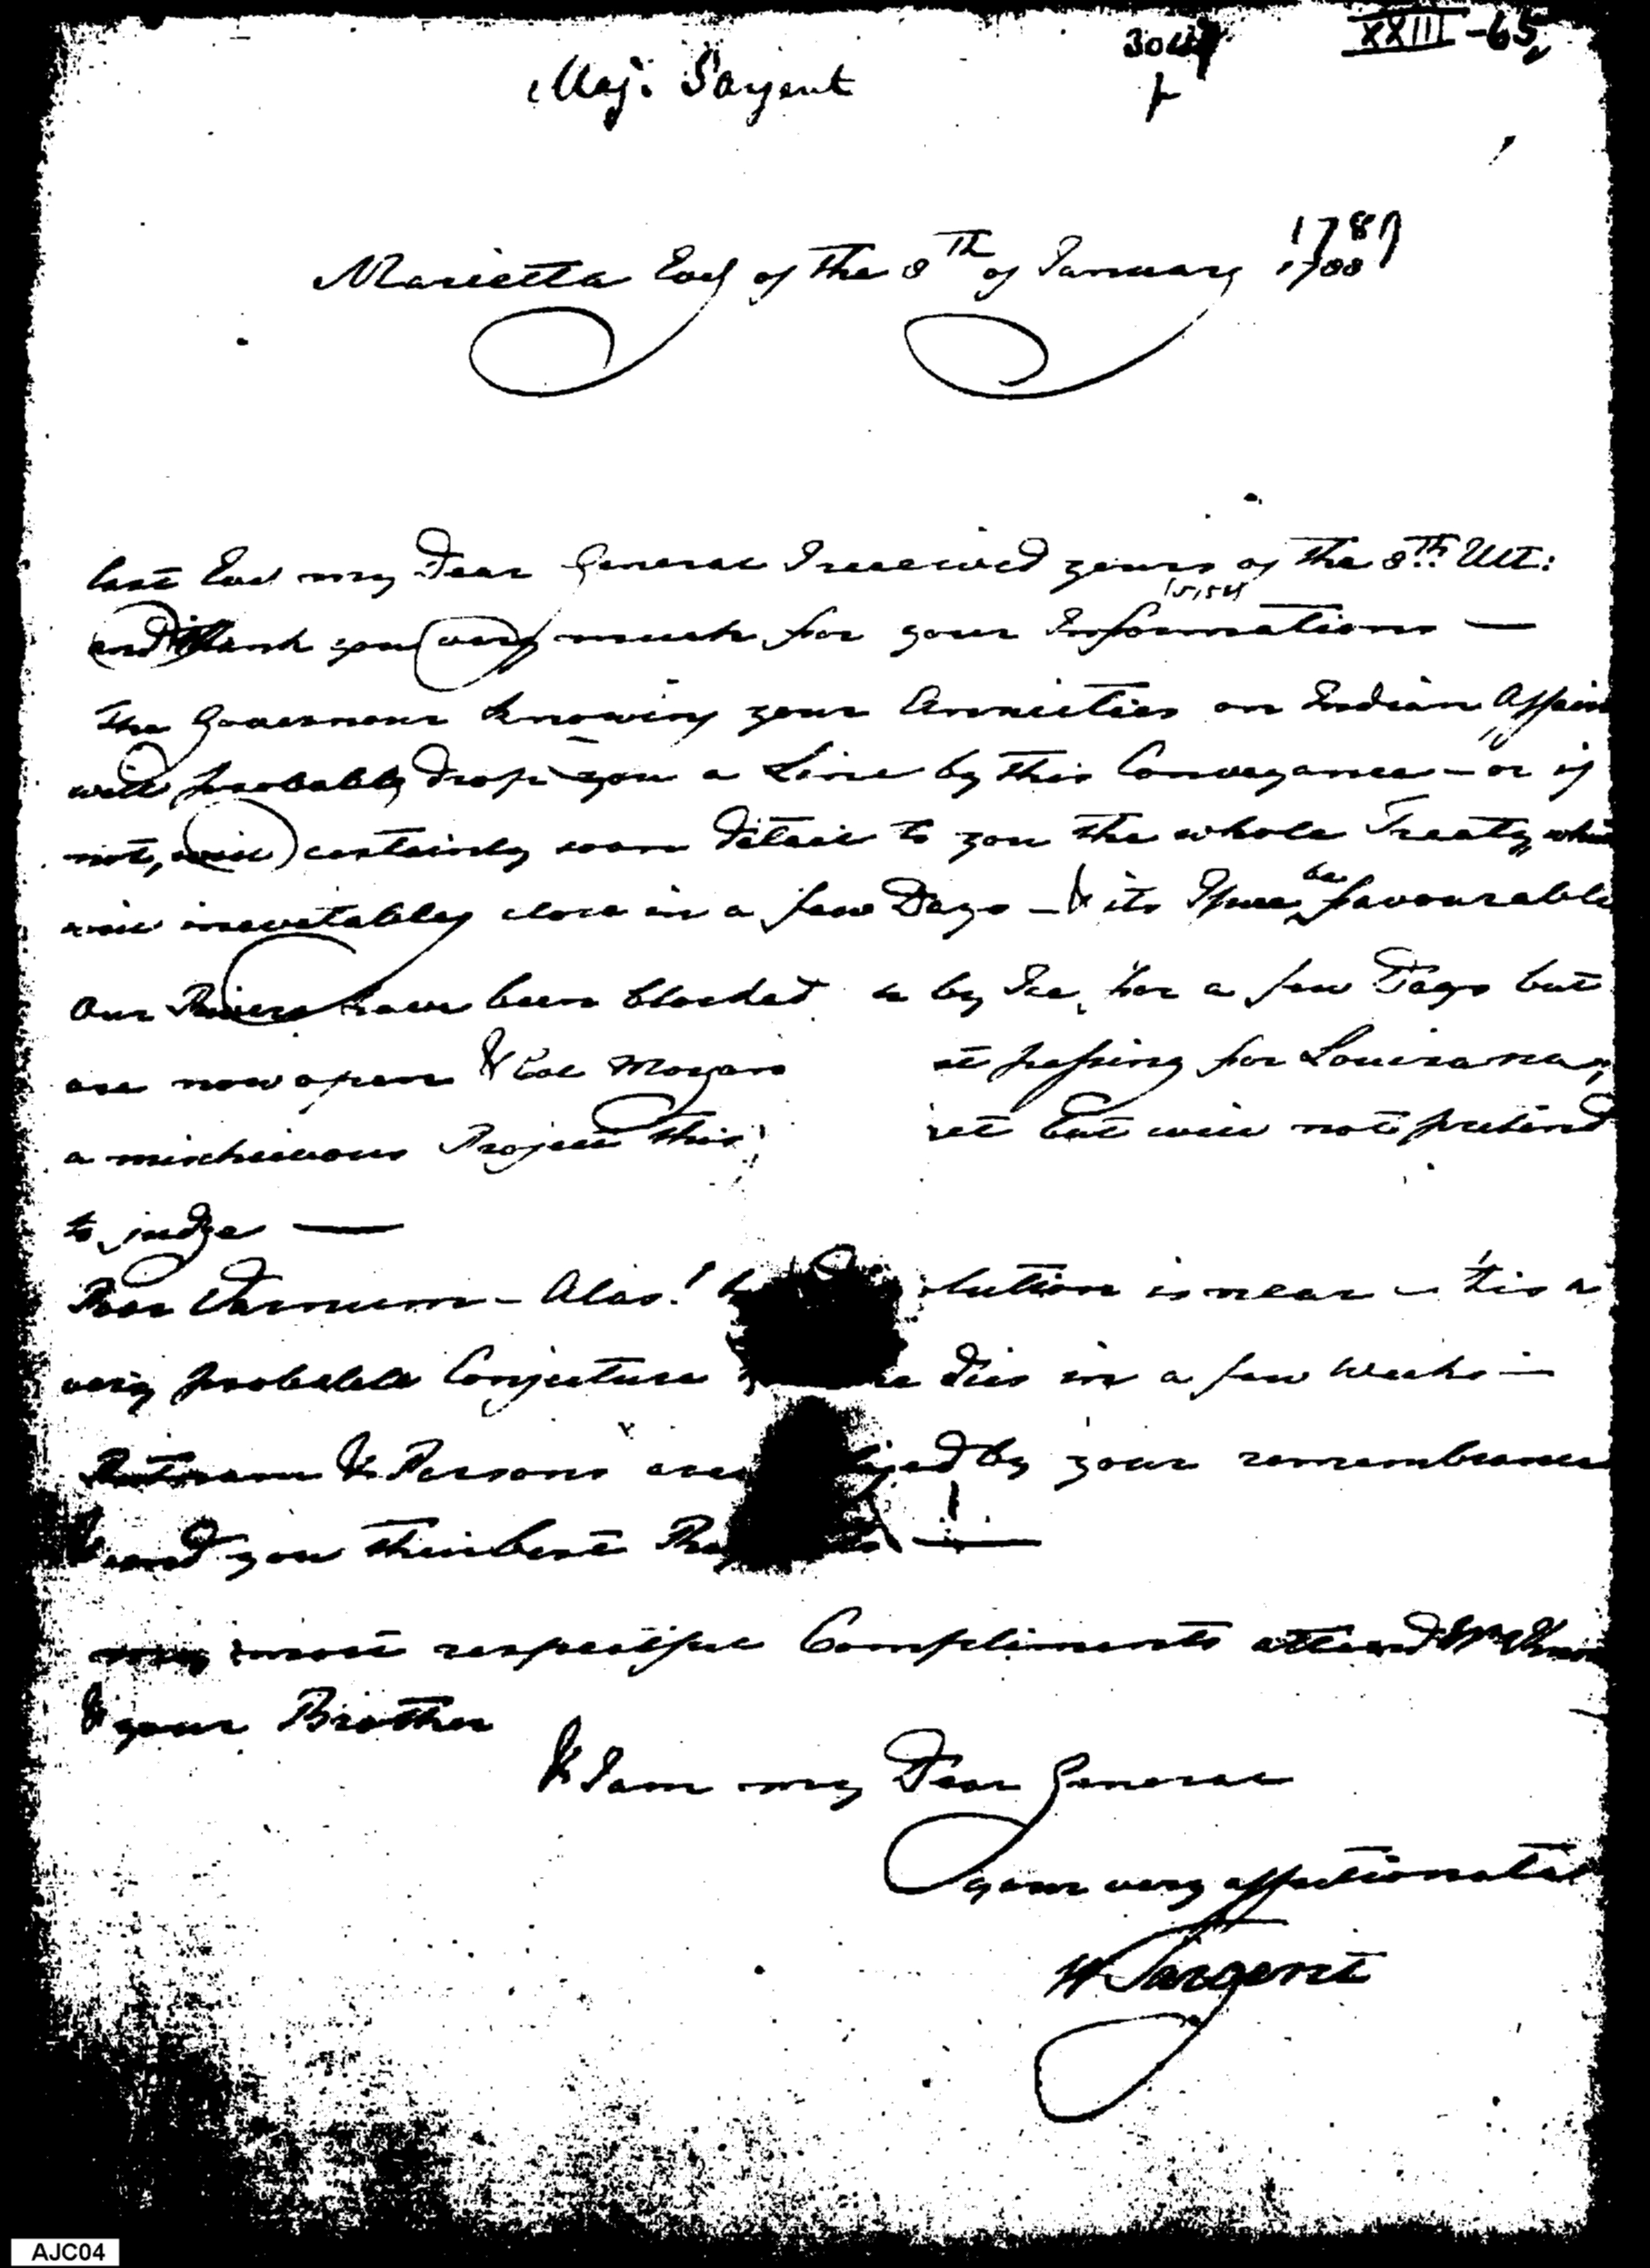 Maj. Sargent
XXIII-65,
Marietta Eve of the 8th of January 1788
1789
last Eve my Dear General I received yours of the 8th Ult:
and thank you very much for your Informations —
The Governour knowing your Anxieties on Indian Affairs
will probably drop you a Line by this Conveyance — or if
not, will certainly soon Detail to you the whole Treaty, which
will inevitably close in a few Days — & its Issue be favourable
Our Rivers have been blocked by Ice, for a few Days but
are now open & Col Morgan passing for Louisiana,
a mischievous Project this but will not pretend
to judge —
Poor Varnum — Alas! lution is near — tis a
very probable Conjecture he dies in a few Weeks —
Putnam & Parsons are by your remembrance
& send you their best
my most respectful Compliments attend Mrs Knox
& your Brother
& I am my Dear General
your very affectionate
W Sargent
AJC04